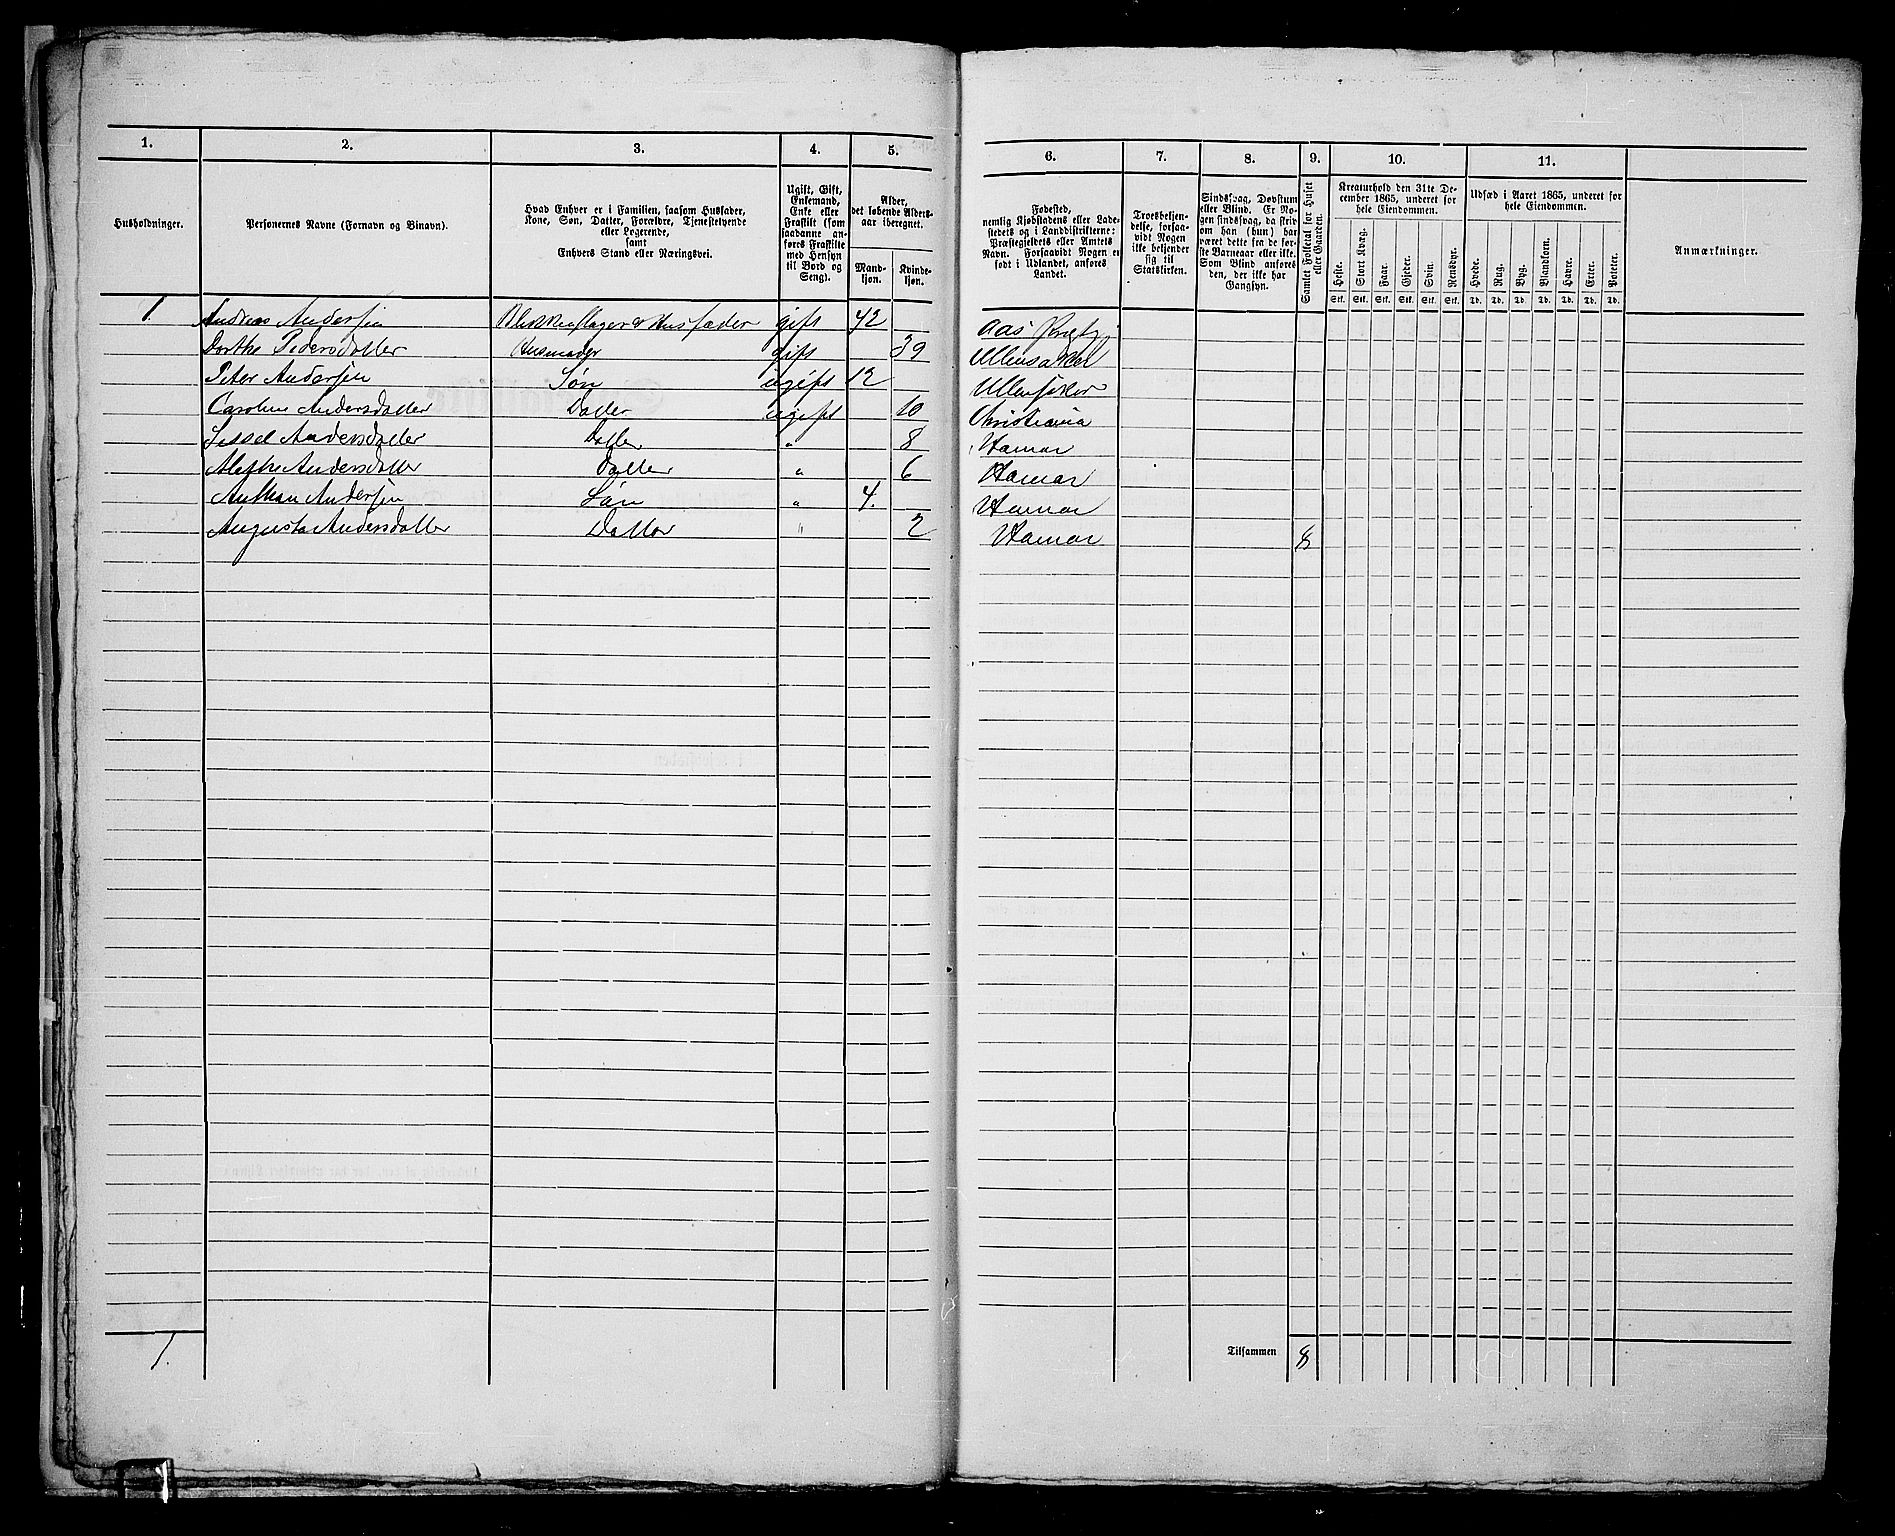 1. 2. 3. 4. 5. 6. 7. 8. 9. 10. 11.
Husholdninger.
Personernes Navne (Fornavn og Binavn).
Hvad Enhver er i Familien, saasom Husfader,
Kone, Søn, Datter, Forældre, Tjenestetyende
eller Logerende,
samt
Enhvers Stand eller Næringsvei.
Ugift, Gift,
Enkemand,
Enke eller
Fraskilt (som
saadanne an-
føres Fraskilte
med Hensyn
til Bord og
Seng).
Alder,
det løbende Alders-
aar iberegnet.
Mand-
kjøn.
Kvinde-
kjøn.
Fødested,
nemlig Kjøbstadens eller Lade-
stedets og i Landdistrikterne:
Præstegjeldets eller Amtets
Navn. Forsaavidt Nogen er
født i Udlandet, anføres
Landet.
Troesbekjen-
delse, forsaa-
vidt Nogen
ikke bekjender
sig til
Statskirken.
Sindssvag, Døvstum
eller Blind. Er No-
gen sindssvag, da skriv
om han (hun) har
været dette fra de før-
ste Barneaar eller ikke.
Som Blind anføres
den, der ikke har
Gangsyn.
Samlet Folketal for Huset
eller Gaarden.
Kreaturhold den 31te De-
cember 1865, underet for
hele Eiendommen.
Heste. Stort Kvæg. Faar. Gjeder. Svin. Rensdyr.
Stk. Stk. Stk. Stk. Stk. Stk.
Udsæd i Aaret 1865, underet for
hele Eiendommen.
Hvede. Rug. Byg. Blandkorn. Havre. Erter. Poteter.
Td. Td. Td. Td. Td. Td. Td.
Anmærkninger.
1. Andreas Andersen Blikkenslager & Husfader gift 42 Aas
Dorthe Pedersdatter Husmoder gift 39 Ullensaker
Peter Andersen Søn ugift 12 Ullensaker
Caroline Andersdatter Datter ugift 10 Christiania
Sissel Andersdatter Datter " 8 Hamar
Mathe Andersdatter Datter " 6 Hamar
Anthon Andersen Søn " 4. Hamar
Augusta Andersdatter Datter " 2 Hamar 8
1. Tilsammen 8